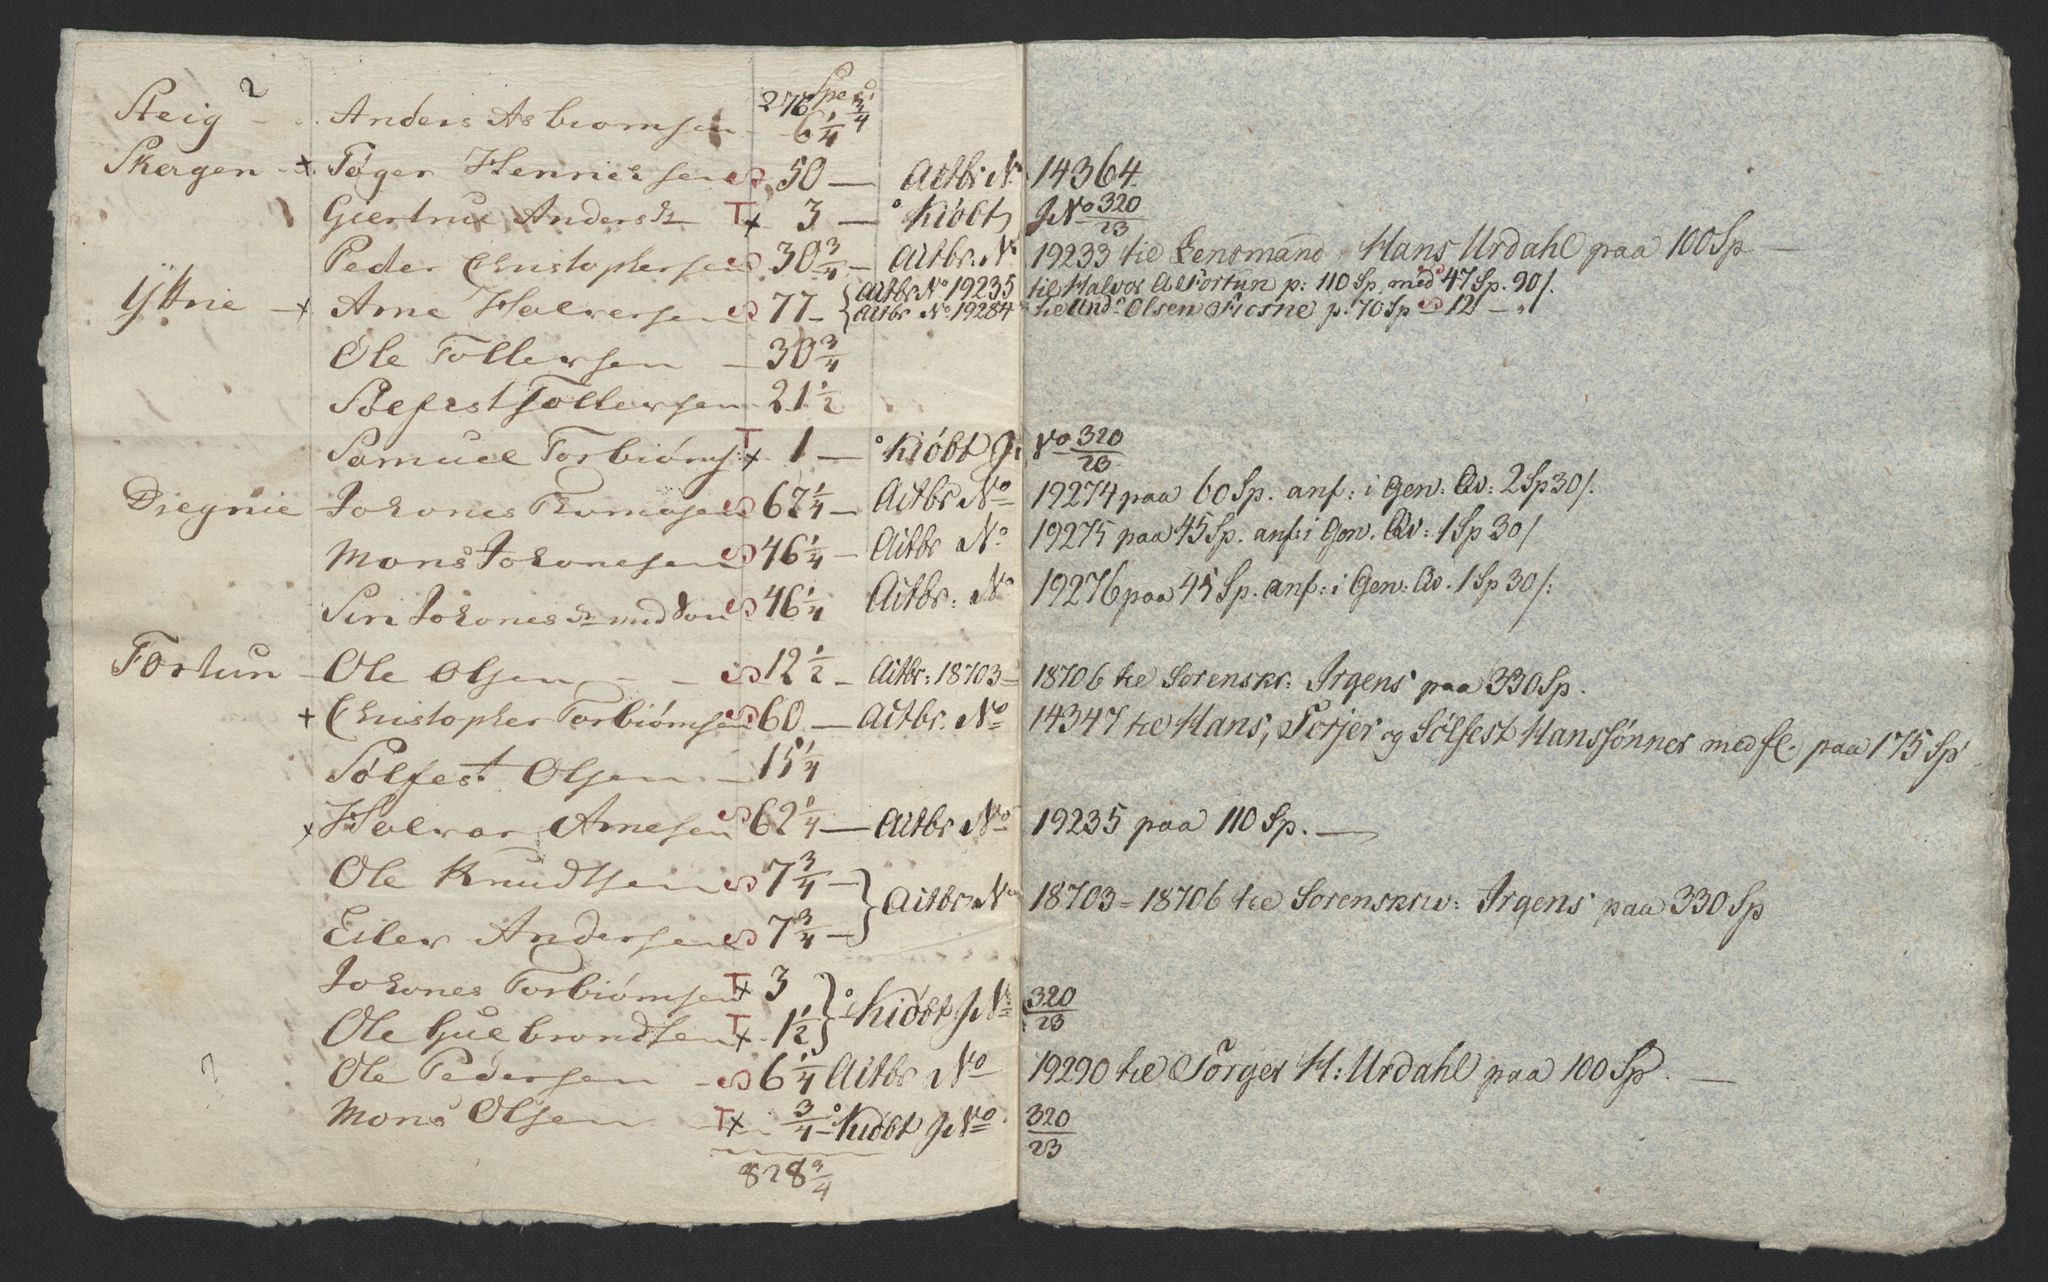 276 Spe 3/4
Steig - Anders Asbiornsen - 6 1/4
Skergen - x Tøger Henrichsen S 50 — Actbr N 14364
Giertrue Andersdr T x 3 — ° Kiøbt J No 320/23
Peder Christophersen S 30 3/4 — Actbr. No 19233 til Lensmand Hans Urdahl paa 100 Sp —
Yttrie - x Arne Halversen S 77 - { Actbr No 19235 til Halvor A Fortun p: 110 Sp. med 47 Sp. 90 /.
Actbr No 19284 Olsen p. 70 Sp S 12 —
Ole Tollersen — 30 3/4
Sølfest Tollersen — 21 1/2
Samuel Torbiørns: T x 1 — ° Kiøbt J: No 320/23
Dregnie Johanes Thomasen S 62 1/4 — Actbr No 19274 paa 60 Sp. anf: i Gen: Qv: 2 Sp 30 /.
Mons Johanesen S 46 1/4 — Actbr No 19275 paa 45 Sp. anf: i Gen. Qv: 1 Sp 30 /
Siri Johanesdr med Søn S 46 1/4 Actbr: No 19276 paa 45 Sp. anf: i Gen: Qv. 1 Sp 30 /:
Fortun - Ole Olsen - - S 12 1/2 - Actbr: 18703 = 18706 til Sorenskr: Irgens paa 330 Sp.
x Christopher Torbiørnsen S 60 — Actbr. No 14347 til Hans, Torjer og Sølfest Hanssønner med fl. paa 175 Sp
Sølfest Olsen — 15 1/4
x Halvor Arnesen S 62 1/4 — Actbr No 19235 paa 110 Sp. —
Ole Knudtsen S 7 3/4 — } Actbr No 18703 = 18706 til Sorenskriv: Irgens paa 330 Sp
Eiler Andersen S 7 3/4 —
Johanes Torbiørnsen T x 3 } ° Kiøbt J No 320/23
Ole Gulbrandsen T x 1 1/2
Ole Pedersen - S 6 1/4 Actbr No 19290 til Torger H: Urdahl paa 100 Sp. —
Mons Olsen T x 3/4 - ° Kiøbt J No 320/23
828 3/4